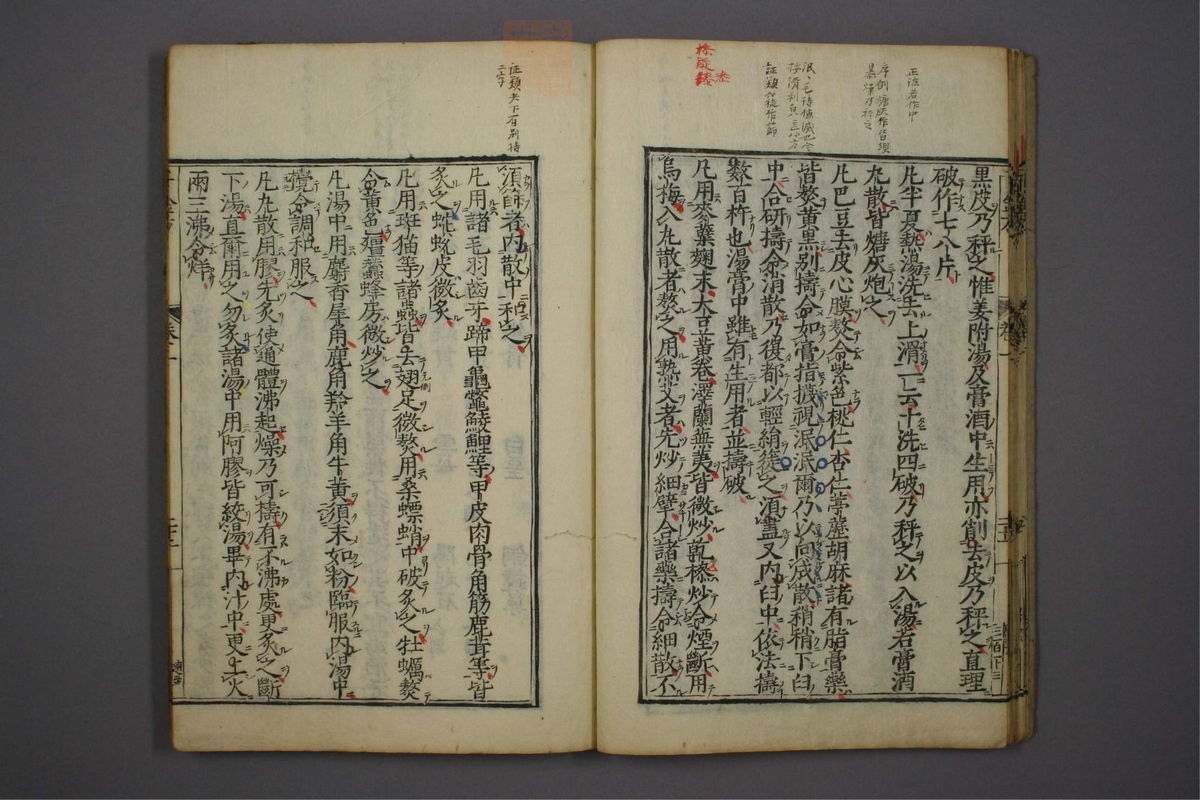 黒皮乃秤之惟姜附湯及膏酒中生用亦削去皮乃秤之直理
破作七八片
凡半夏熱湯洗去上滑一云十洗四破乃秤之以入湯若膏酒
丸散皆煻灰炮之
凡巴豆去皮心膜熬令紫色桃仁杏仁葶藶胡麻諸有脂膏藥
皆熬黄黒別擣令如膏指攕視泯泯爾乃以向成散稍稍下臼
中合研擣令消散乃復都以輕絹簁之湏盡又内臼中依法擣
數百杵也湯膏中雖有生用者並擣破
凡用麥蘗麴末大豆黄卷澤蘭蕪荑皆微炒乾漆炒令煙斷用
烏梅入丸散者熬之用熟艾者先炒細擘合諸藥擣令細散不
須篩者内散中和之
凡用諸毛羽齒牙蹄甲龜鼈鯪鯉等甲皮肉骨角筋鹿茸等皆
炙之蛇蛻皮微炙
凡用斑猫等諸蟲皆去翅足微熬用桑螵蛸中破炙之牡蠣熬
令黄色殭蠶蜂房微炒之
凡湯中用麝香犀角鹿角羚羊角牛黄須末如粉臨服内湯中
攪令調和服之
凡丸散用膠先炙使通體沸起燥乃可擣有不沸處更炙之斷
下湯直爾用之勿炙諸湯中用阿膠皆絞湯畢内汁中更上火
兩三沸令烊